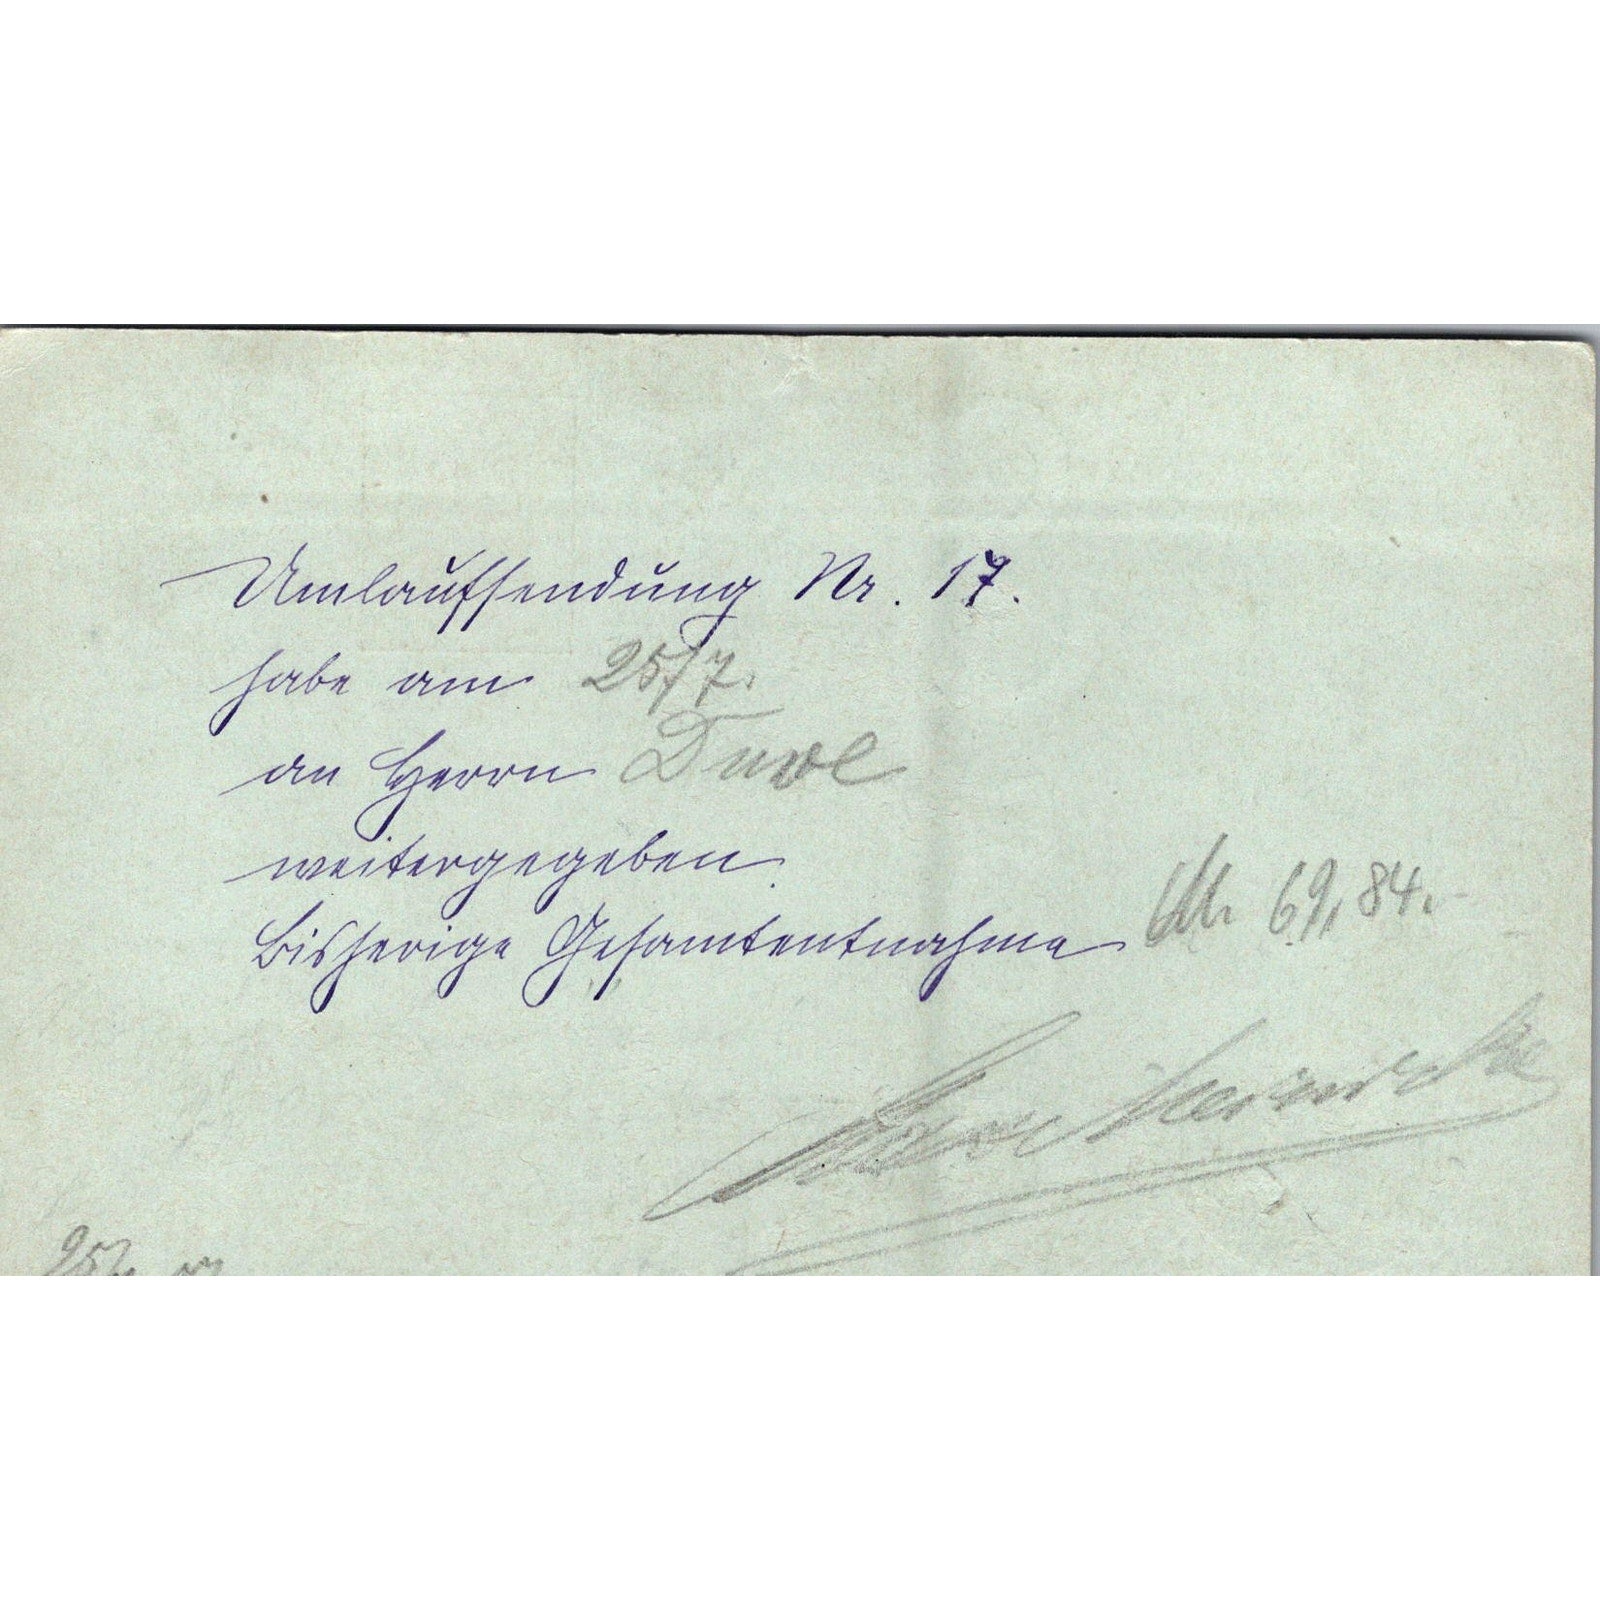 Umlaufsendung Nr. 17.
habe am 25/7.
an Herrn Duve
weitergegeben.
Bisherige Gesamtentnahme M. 69,84.-